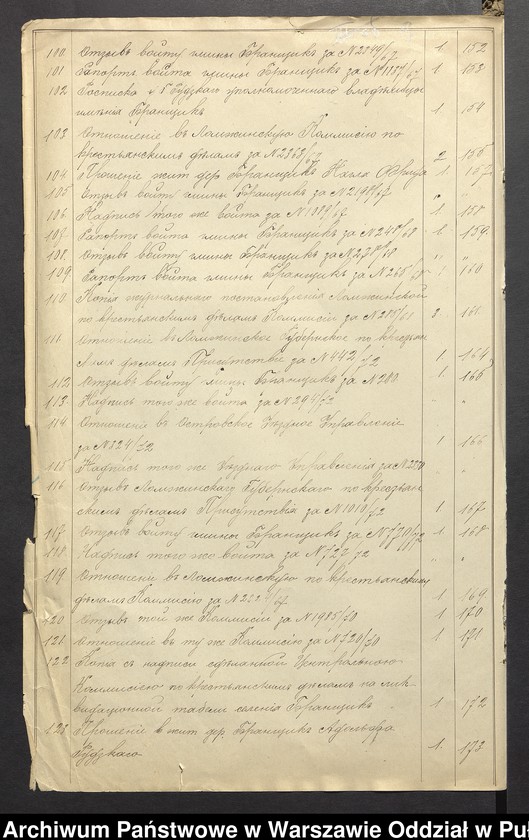 100 Отзывъ войту гмины Бранщикъ за N 2049/67 1 152
101 Рапортъ войта гмины Бранщикъ за N 1157/67 1 153
102 Росписка уполномоченнаго владѣльца
имѣнія Бранщикъ 1 154
103 Отношеніе въ Ломжинскую Коммисію по
крестьянскимъ дѣламъ за N 2363/67 2 155
104 Прошеніе жит. дер. Бранщикъ 1 157
105 Отзывъ войту гмины Бранщикъ за N " "
106 Надпись того же войта за N 1 158
107 Рапортъ войта гмины Бранщикъ за N 248/68 1 159
108 Отзывъ войту гмины Бранщикъ за N " "
109 Рапортъ войта гмины Бранщикъ за N 265/68 1 160
110 Копія журнальнаго постановленія Ломжинской
по крестьянскимъ дѣламъ Коммисіи за N 2 161
111 Отношеніе въ Ломжинское Губернское по крестьян
скимъ дѣламъ Присутствіе за N 442/72 1 164
112 Отзывъ войту гмины Бранщикъ за N 200 1 165
113 Надпись того же войта за N 294/72 " "
114 Отношеніе въ Островское Уѣздное Управленіе
за N 324/72 1 166
115 Надпись того же Уѣзднаго Управленія за N " "
116 Отзывъ Ломжинскаго Губернскаго по крестьян
скимъ дѣламъ Присутствія за N 1010/72 1 167
117 Отзывъ войту гмины Бранщикъ за N 720/72 1 168
118 Надпись того же войта за N 722/72 " "
119 Отношеніе въ Ломжинскую по крестьянскимъ
дѣламъ Коммисію за N 1 169
120 Отзывъ той же Коммисіи за N 1985/70 1 170
121 Отношеніе въ ту же Коммисію за N 720/70 1 171
122 Копія съ надписи сдѣланной Центральною
Коммисіею по крестьянскимъ дѣламъ на лик-
видаціонной табели селенія Бранщикъ 1 172
123 Прошеніе жит. дер. Бранщикъ
1 173
Archiwum Państwowe w Warszawie Oddział w Pu